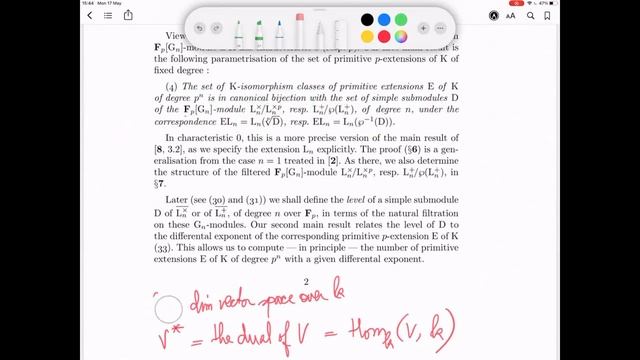 15:44 Mon 17 May
AA 47%
View
F_p[G_n]-mod
the following parametrisation of the set of primitive p-extensions of K of
fixed degree :
(4) The set of K-isomorphism classes of primitive extensions E of K
of degree p^n is in canonical bijection with the set of simple submodules D
of the F_p[G_n]-module L_n^×/L_n^{×p}, resp. L_n^+/℘(L_n^+), of degree n, under the
correspondence EL_n = L_n(ᵖ√D), resp. EL_n = L_n(℘^{-1}(D)).
In characteristic 0, this is a more precise version of the main result of
[8, 3.2], as we specify the extension L_n explicitly. The proof (§6) is a gen-
eralisation from the case n = 1 treated in [2]. As there, we also determine
the structure of the filtered F_p[G_n]-module L_n^×/L_n^{×p}, resp. L_n^+/℘(L_n^+), in
§7.
Later (see (30) and (31)) we shall define the level of a simple submodule
D of L_n^× or of L_n^+, of degree n over F_p, in terms of the natural filtration
on these G_n-modules. Our second main result relates the level of D to
the differential exponent of the corresponding primitive p-extension E of K
(33). This allows us to compute — in principle — the number of primitive
extensions E of K of degree p^n with a given differential exponent.
2
dim vector space over k
V* = the dual of V = Hom_k (V, k)